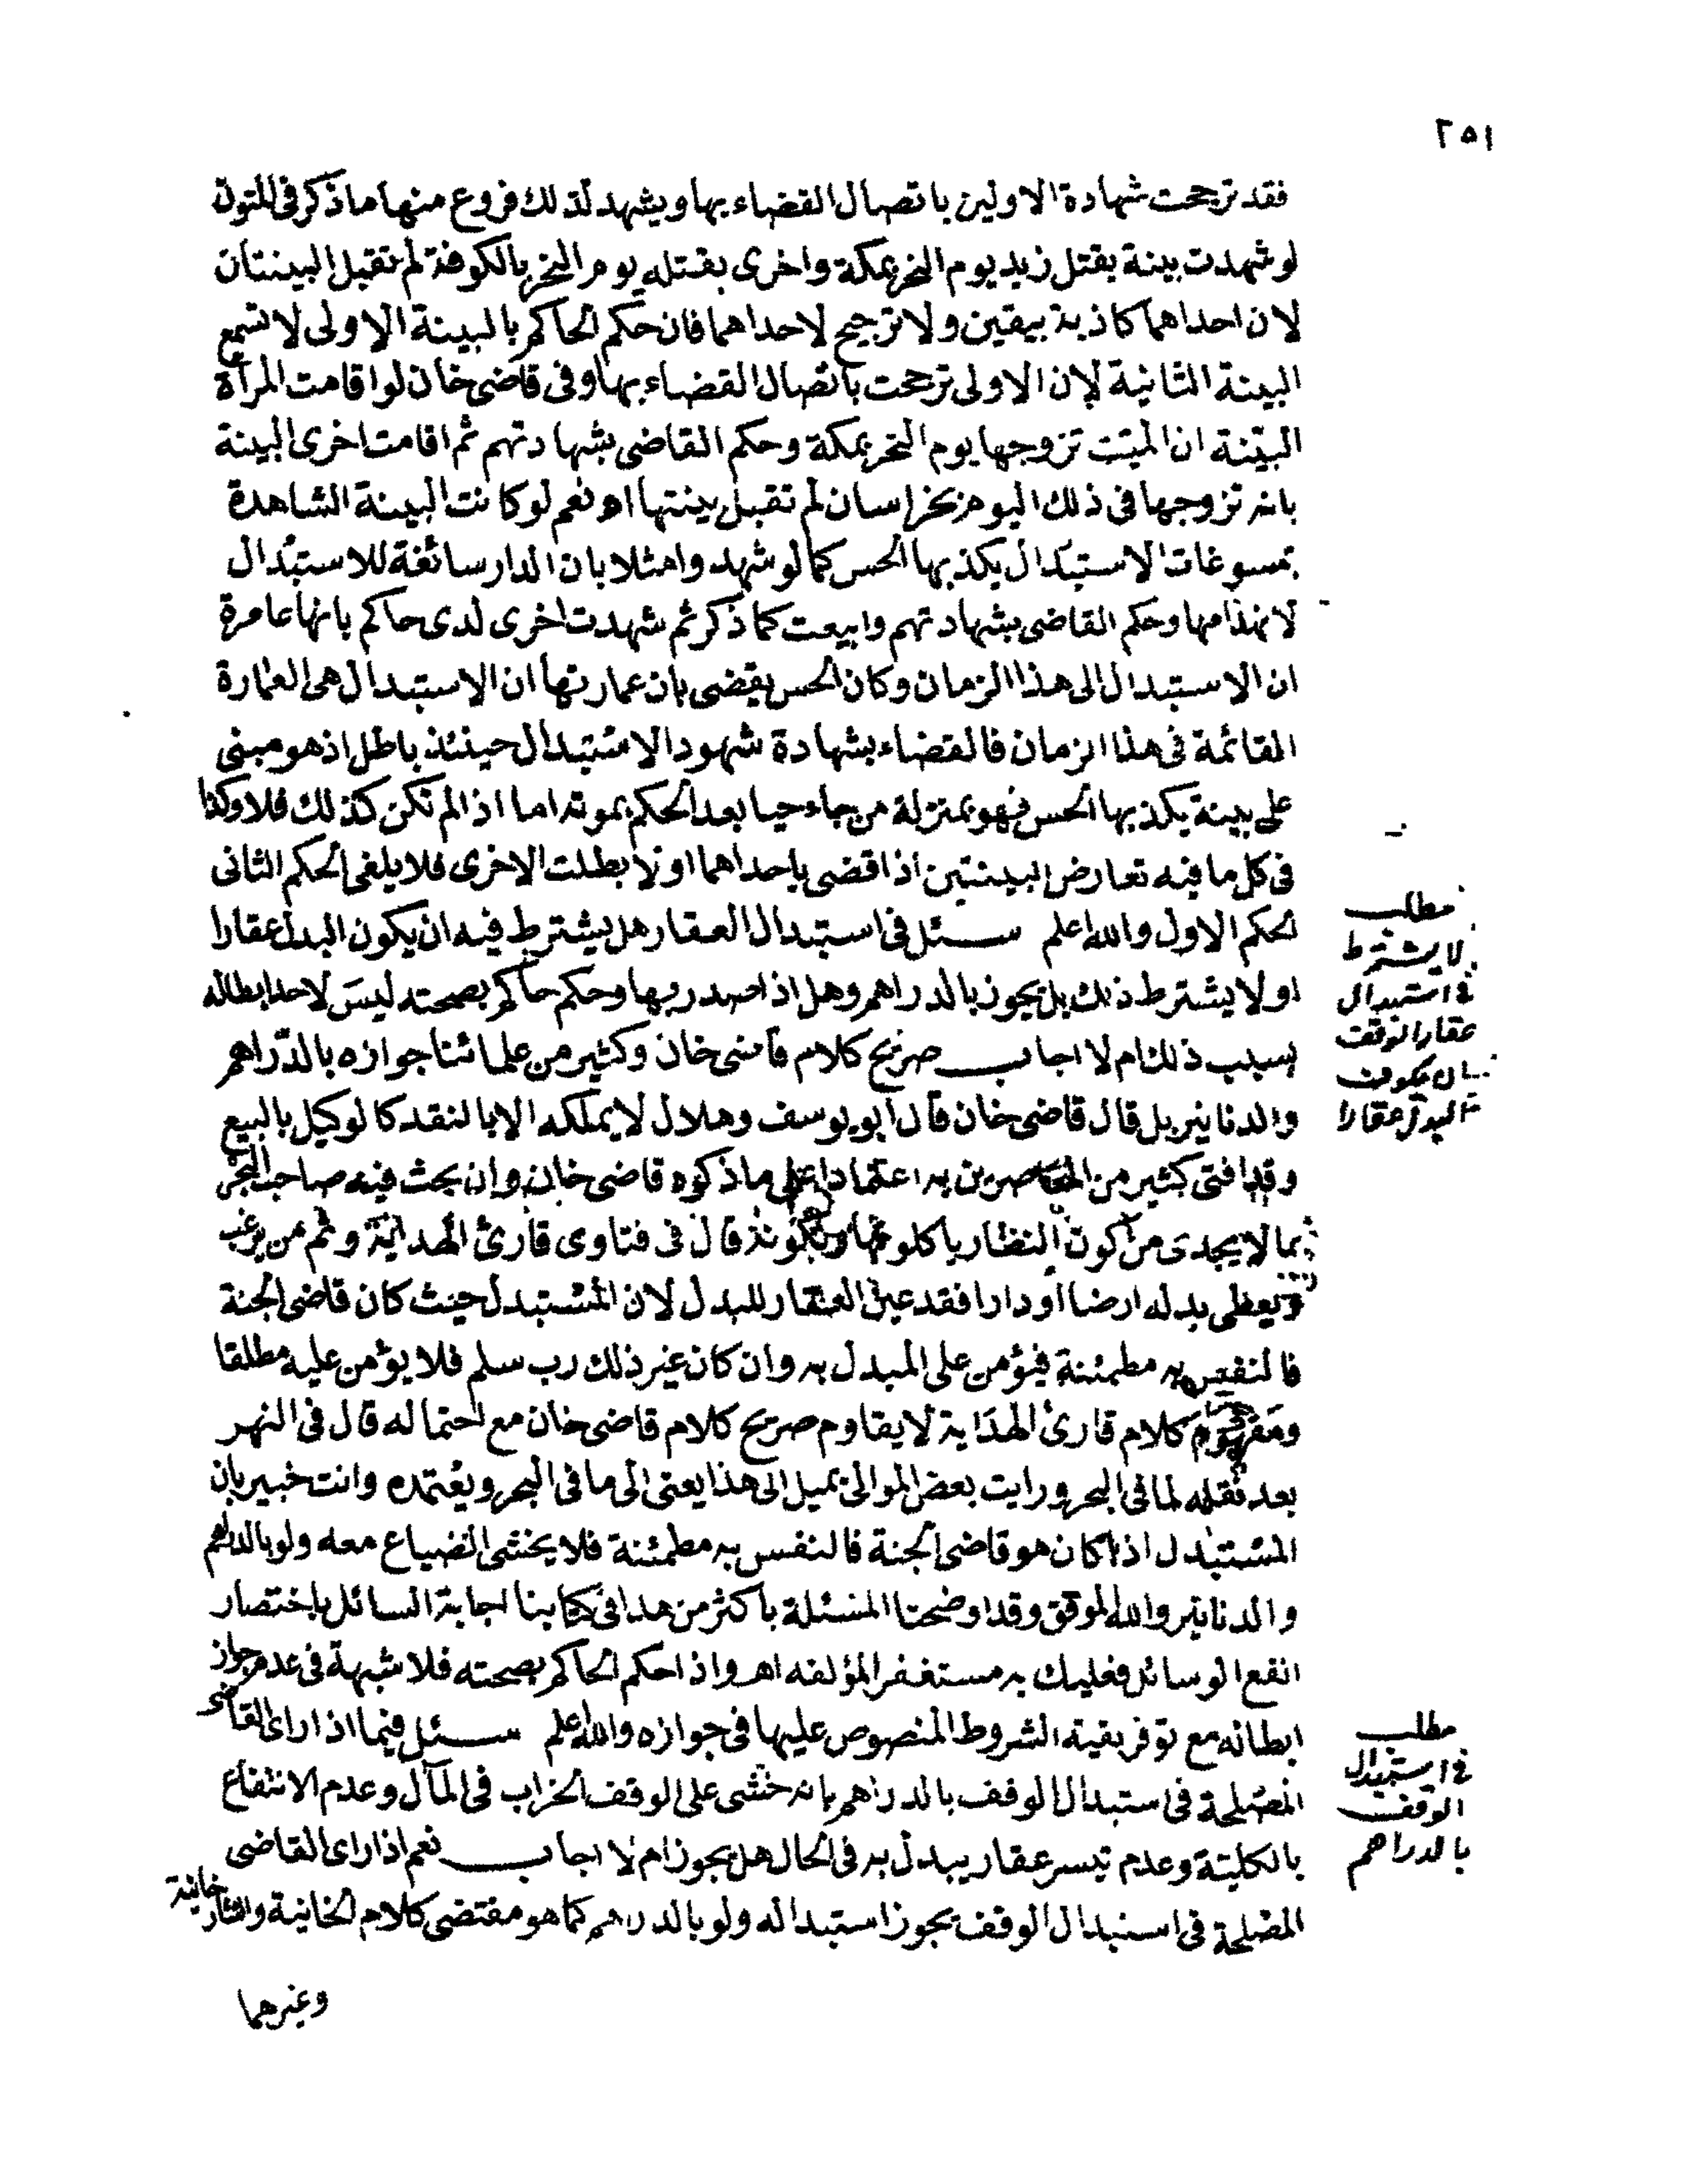 ٢٥١
فقد ترجحت شهادة الاولين باتصال القضاء بها ويشهد لذلك فروع منها ما ذكر فى المتون
لو شهدت بينة بقتل زيد يوم النحر بمكة واخرى بقتله يوم النحر بالكوفة لم تقبل البينتان
لان احداهما كاذبة بيقين ولا ترجيح لاحداهما فان حكم الحاكم بالبينة الاولى لا تسمع
البينة الثانية لان الاولى ترجحت باتصال القضاء بها وفى قاضى خان لو اقامت المرأة
البينة ان الميت تزوجها يوم النحر بمكة وحكم القاضى بشهادتهم ثم اقامت اخرى البينة
بانه تزوجها فى ذلك اليوم بخراسان لم تقبل بينتها اه نعم لو كانت البينة الشاهدة
بمسوغات الاستبدال يكذبها الحس كما لو شهدوا مثلا بان الدار سائغة للاستبدال
لانهدامها وحكم القاضى بشهادتهم وابيعت كما ذكر ثم شهدت اخرى لدى حاكم بانها عامرة
ان الاستبدال الى هذا الزمان وكان الحس يقضى بان عمارتها ان الاستبدال هى العمارة
القائمة فى هذا الزمان فالقضاء بشهادة شهود الاستبدال حينئذ باطل اذ هو مبنى
على بينة يكذبها الحس فهو بمنزلة من جاء حيا بعد الحكم بموته اما اذا لم تكن كذلك فلا وكذا
فى كل ما فيه تعارض البينتين اذا قضى باحداهما اولا بطلت الاخرى فلا يلغى الحكم الثانى
الحكم الاول والله اعلم سئل فى استبدال العقار هل يشترط فيه ان يكون البدل عقارا
او لا يشترط ذلك بل يجوز بالدراهم وهل اذا صدر بها وحكم حاكم بصحته ليس لاحد ابطاله
بسبب ذلك ام لا اجاب صريح كلام قاضى خان وكثير من علمائنا جوازه بالدراهم
والدنانير بل قال قاضى خان قال ابو يوسف وهلال لا يملكه الا بالنقد كالوكيل بالبيع
وقد افتى كثير من المعاصرين به اعتمادا على ما ذكره قاضى خان وان بحث فيه صاحب البحر
بما لا يجدى من كون النظار ياكلونها قال فى فتاوى قارئ الهداية وثم من يرغب
ويعطى بدله ارضا او دارا فقد عين العقار للبدل لان المستبدل حيث كان قاضى الجنة
فالنفس به مطمئنة فيؤمن على المبدل به وان كان غير ذلك رب سلم فلا يؤمن عليه مطلقا
ومفهوم كلام قارئ الهداية لا يقاوم صريح كلام قاضى خان مع احتماله قال فى النهر
بعد نقله لما فى البحر ورايت بعض الموالى يميل الى هذا يعنى الى ما فى البحر ويعتمده وانت خبير بان
المستبدل اذا كان هو قاضى الجنة فالنفس به مطمئنة فلا يخشى الضياع معه ولو بالدراهم
والدنانير والله الموفق وقد اوضحنا المسئلة باكثر من هذا فى كتابنا اجابة السائل باختصار
انفع الوسائل فعليك به مستغفرا لمؤلفه اه واذا حكم الحاكم بصحته فلا شبهة فى عدم جواز
ابطاله مع توفر بقية الشروط المنصوص عليها فى جوازه والله اعلم سئل فيما اذا راى القاضى
المصلحة فى استبدال الوقف بالدراهم بانه خشى على الوقف الخراب فى المآل وعدم الانتفاع
بالكلية وعدم تيسر عقار يبدل به فى الحال هل يجوز ام لا اجاب نعم اذا راى القاضى
المصلحة فى استبدال الوقف يجوز استبداله ولو بالدراهم كما هو مقتضى كلام الخانية والتتارخانية
وغيرهما
مطلب
لا يشترط
فى استبدال
عقار الوقف
ان يكون
البدل عقارا
مطلب
فى استبدال
الوقف
بالدراهم